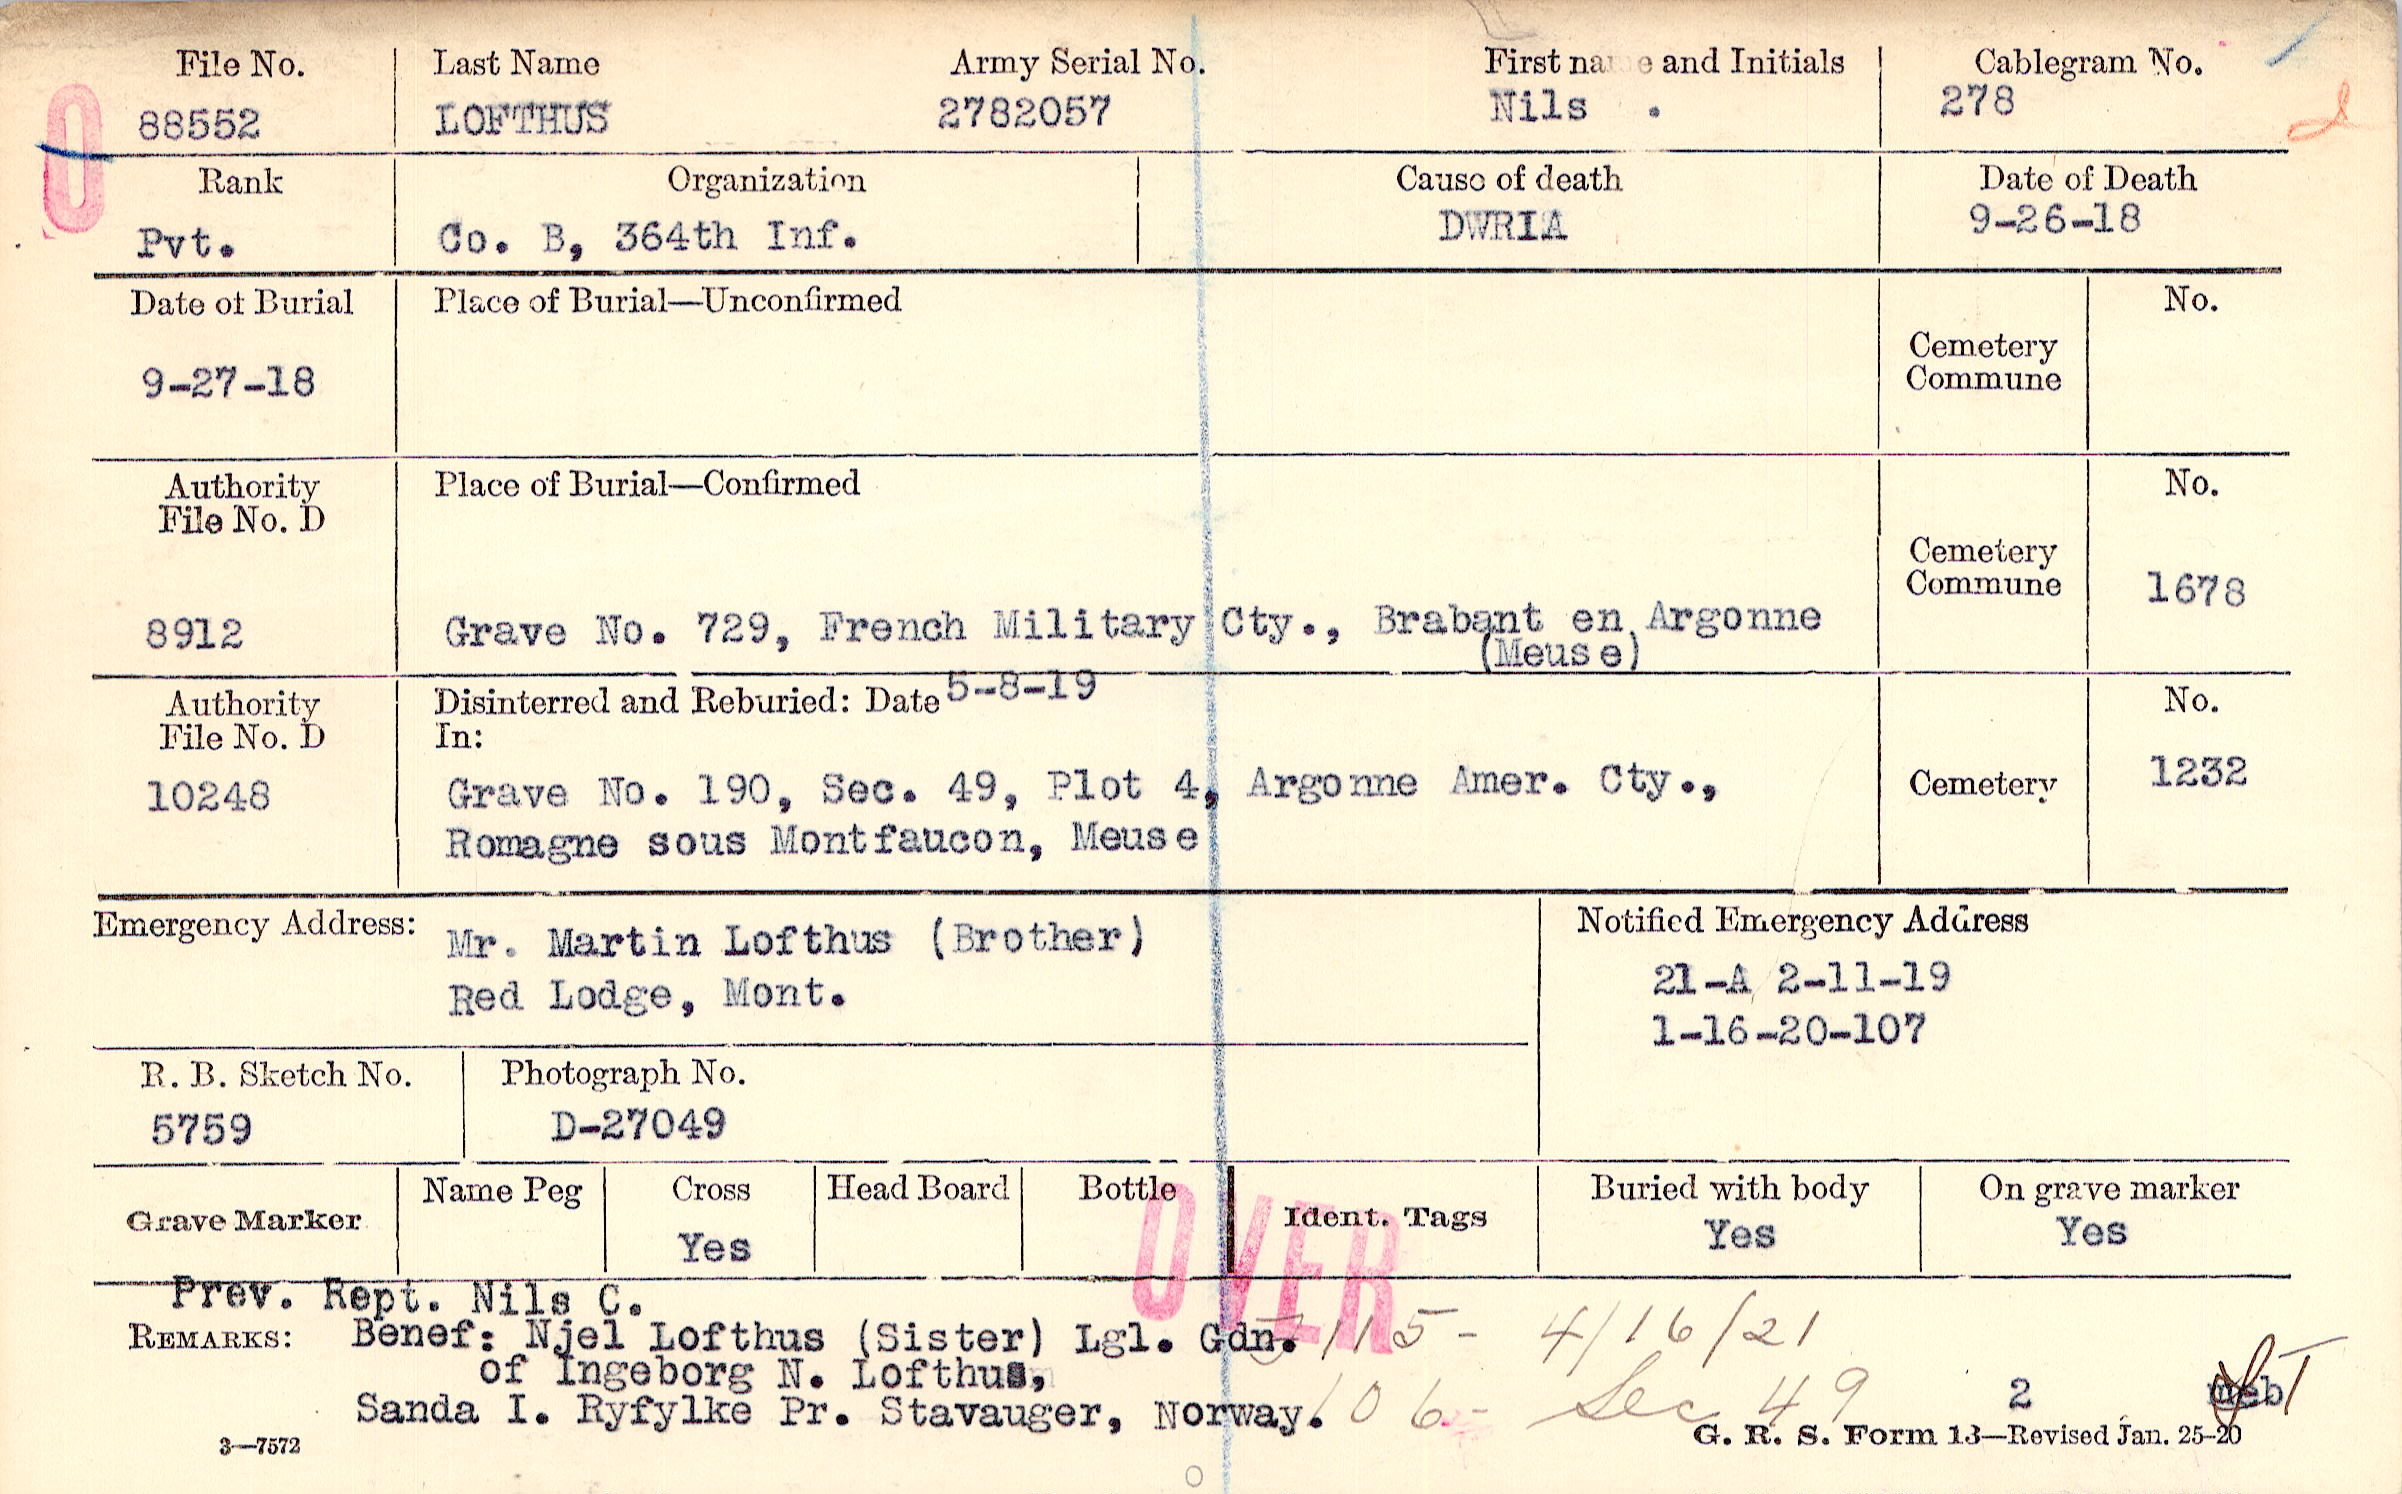 File No. Last Name Army Serial No. First name and Initials Cablegram No.
88552 LOFTHUS 2782057 Nils . 278
Rank Organization Cause of death Date of Death
Pvt. Co. B, 364th Inf. DWRIA 9-26-18
Date of Burial Place of Burial—Unconfirmed No.
Cemetery
Commune
9-27-18
Authority Place of Burial—Confirmed No.
File No. D
Cemetery
Commune 1678
8912 Grave No. 729, French Military Cty., Brabant en Argonne
(Meuse)
Authority Disinterred and Reburied: Date 5-8-19 No.
File No. D In:
10248 Grave No. 190, Sec. 49, Plot 4, Argonne Amer. Cty., Cemetery 1232
Romagne sous Montfaucon, Meuse
Emergency Address: Mr. Martin Lofthus (Brother) Notified Emergency Address
Red Lodge, Mont. 21-A 2-11-19
1-16-20-107
R. B. Sketch No. Photograph No.
5759 D-27049
Grave Marker Name Peg Cross Head Board Bottle Ident. Tags Buried with body On grave marker
Yes Yes Yes
OVER
Prev. Rept. Nils C.
REMARKS: Benef: Njel Lofthus (Sister) Lgl. Gdn. 115- 4/16/21
of Ingeborg N. Lofthus,
Sanda I. Ryfylke Pr. Stavauger, Norway. 106- Sec 49 2
3—7572 G. R. S. Form 13—Revised Jan. 25-20